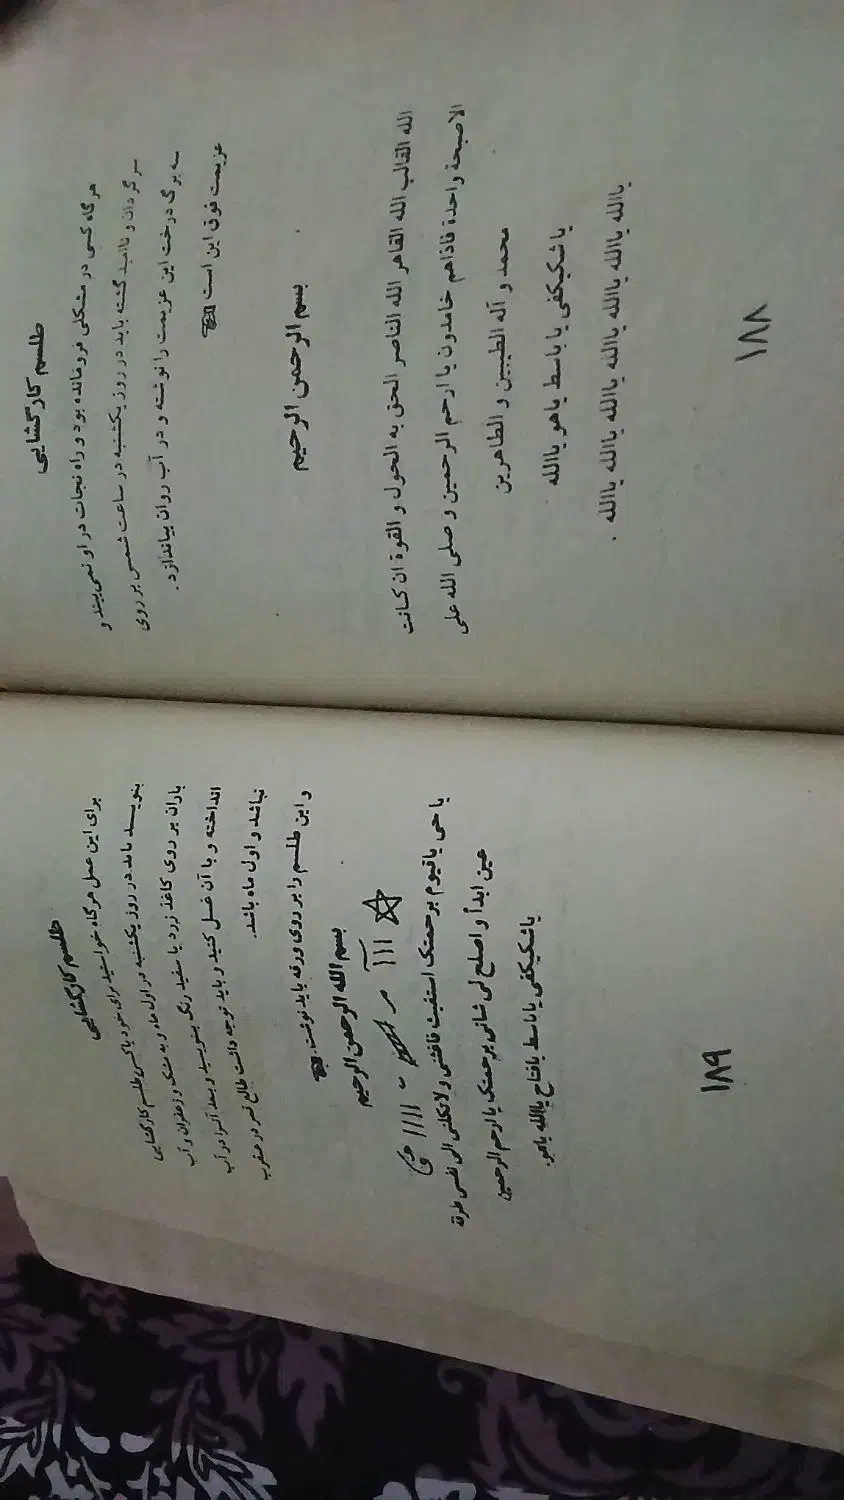 طلسم کارگشایی
هرگاه کسی در مشکلی فرومانده بود و راه نجات در او نمی‌بیند و
سرگردان و ناامید گشته باید در روز یکشنبه در ساعت شمس بر روی
سه برگ درخت این عزیمت را نوشته و در آب روان بیاندازد.
عزیمت فوق این است
بسم الرحمن الرحیم
الله القالب الله القاهر الله الناصر الحق به الحول و القوة ان کانت
الاصبحة واحدة فاذاهم خامدون یا ارحم الرحمین و صلی الله علی
محمد و آله الطیبین و الطاهرین
یاشکیکفی یا باسط یاهو یاالله
یاالله یاالله یاالله یاالله یاالله یاالله یاالله .
۱۸۸
طلسم کارگشایی
برای این عمل هرگاه خواستید برای خود یا کسی طلسم کارگشایی
بنویسد باید در روز یکشنبه در اول ماه و به مشک و زعفران و آب
باران بر روی کاغذ زرد یا سفید رنگ بنویسید و بعد آنرا در آب
انداخته و با آن غسل کنید و باید توجه داشت طالع قمر در عقرب
نباشد و اول ماه باشد.
و این طلسم را بر روی ورقه باید نوشت.
بسم الله الرحمن الرحیم
یا حی یاقیوم برحمتک استغیث فاغثنی ولاتکلنی الی نفسی طرفة
عین ابداً و اصلح لی شانی برحمتک یا ارحم الرحمین
یاشکیکفی یاباسط یافتاح یاالله یاهو.
۱۸۹